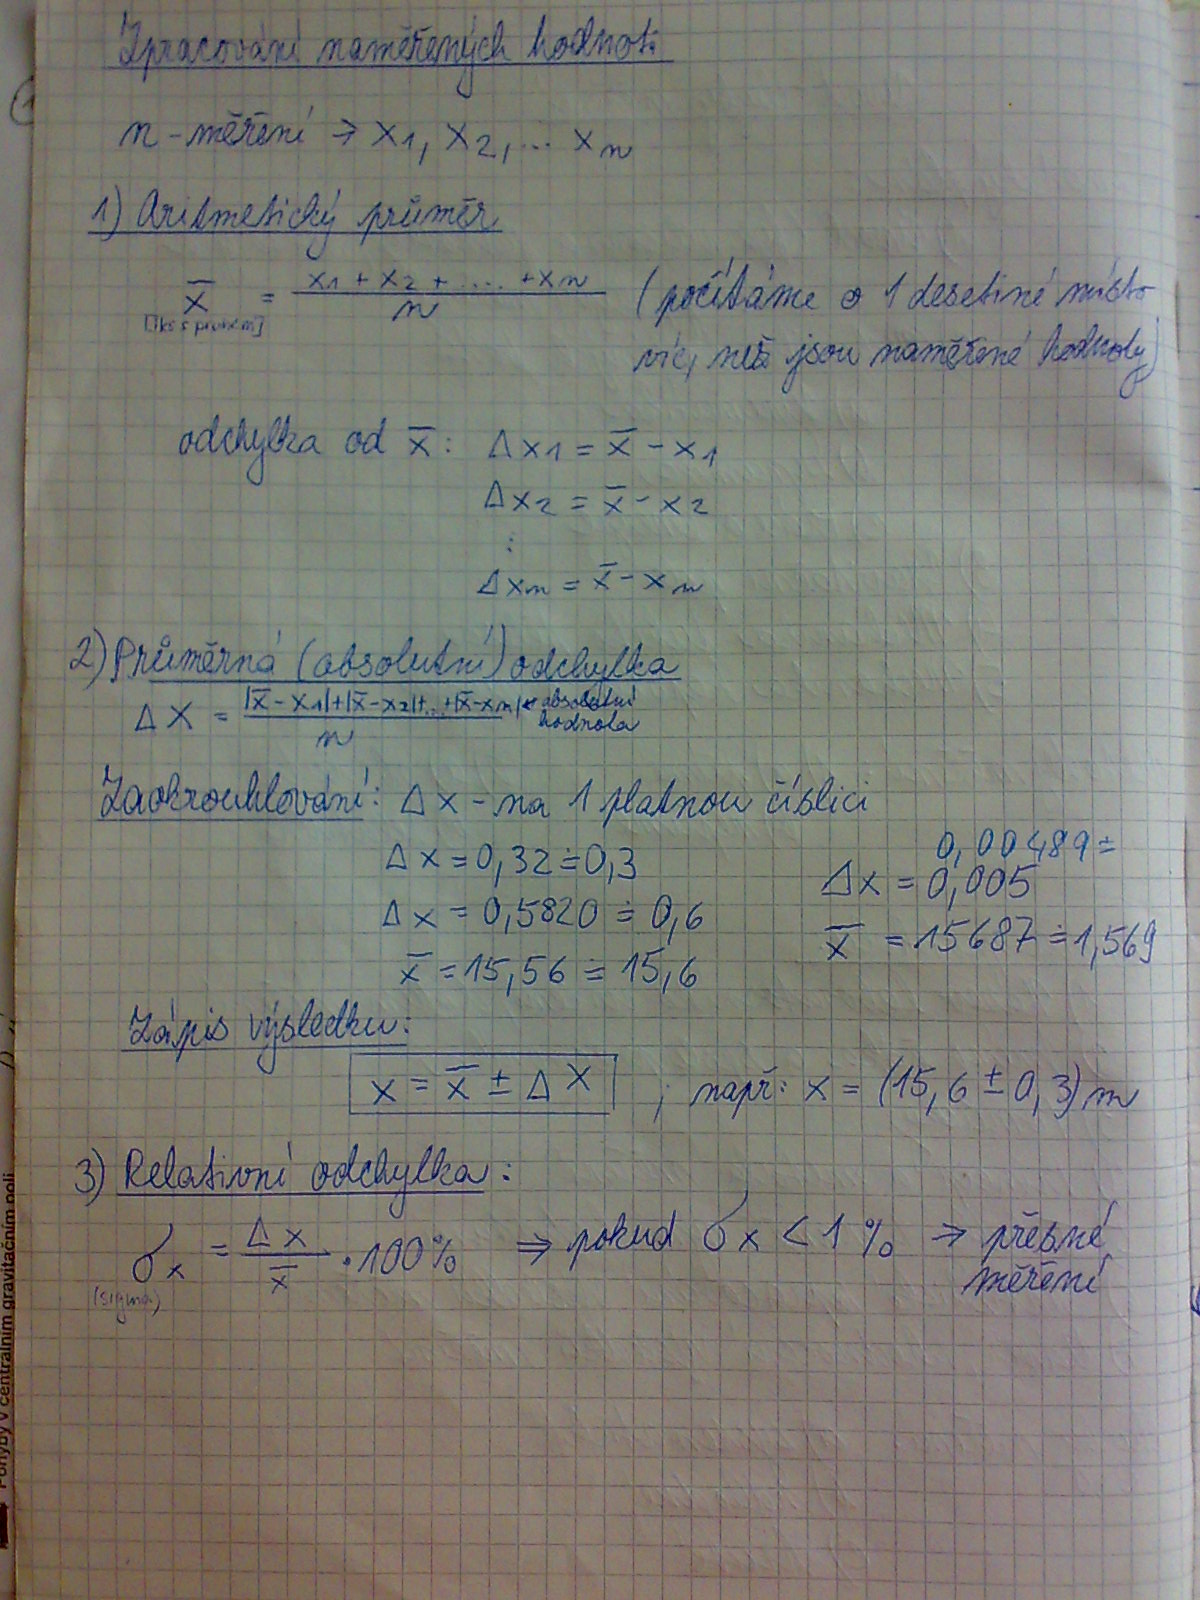 Zpracování naměřených hodnot:
n-měření → x1, x2, ... xn
1) Aritmetický průměr
x̄ = (x1 + x2 + .... + xn) / n (počítáme o 1 desetiné místo
[iks s pruhem] víc, než jsou naměřené hodnoty)
odchylka od x̄: Δx1 = x̄ - x1
Δx2 = x̄ - x2
⋮
Δxn = x̄ - xn
2) Průměrná (absolutní) odchylka
Δx = (|x̄ - x1| + |x̄ - x2| + ... + |x̄ - xn|) / n ← absolutní
hodnota
Zaokrouhlování: Δx - na 1 platnou číslici
Δx = 0,32 ≐ 0,3
0,00489 ≐
Δx = 0,005
Δx = 0,5820 ≐ 0,6
x̄ = 15687 ≐ 1,569
x̄ = 15,56 ≐ 15,6
Zápis výsledku:
x = x̄ ± Δx ; např: x = (15,6 ± 0,3) m
3) Relativní odchylka:
σx = Δx / x̄ · 100% ⇒ pokud σx < 1% → přesné
měření
(sigma)
Pohyby v centrálním gravitačním poli